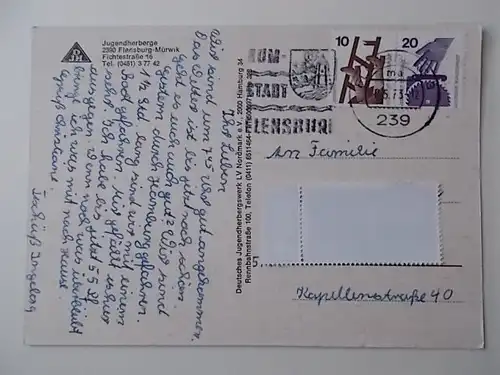 Jugendherberge
2390 Flensburg-Mürwik
Fichtestraße 16
Tel. (0461) 3 77 42
Ihr Lieben!
Wir sind um 7.45 Uhr gut angekommen.
Das Wetter ist bis jetzt noch schön.
Geht es euch auch gut? Wir sind
gestern durch Hamburg gefahren.
1½ Std. lang sind wir mit einem
Boot gefahren. Mir gefällt es hier
sehr! Ich habe bis jetzt 5,- DM
ausgegeben. Wenn noch was überbleibt
bring ich was mit nach Hause.
Grüß Christiane.
Tschüß Ingeborg
Deutsches Jugendherbergswerk LV Nordmark e.V., 2000 Hamburg 34
Rennbahnstraße 100, Telefon (0411) 6511464
10
20
UM-
STADT
FLENSBURG
239
An Familie
5
Kapellenstraße 40